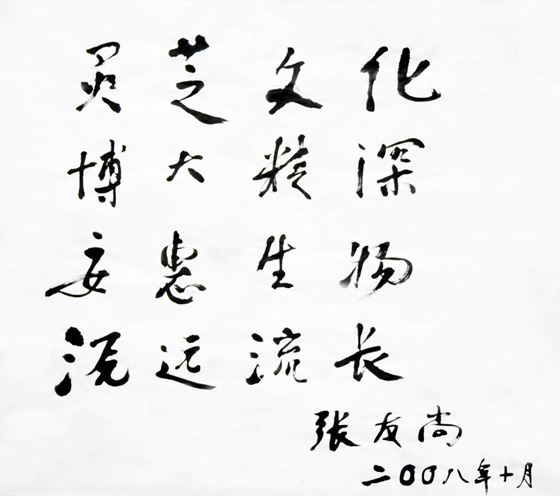 灵芝文化
博大精深
安惠生物
源远流长
张友尚
二〇〇八年十月